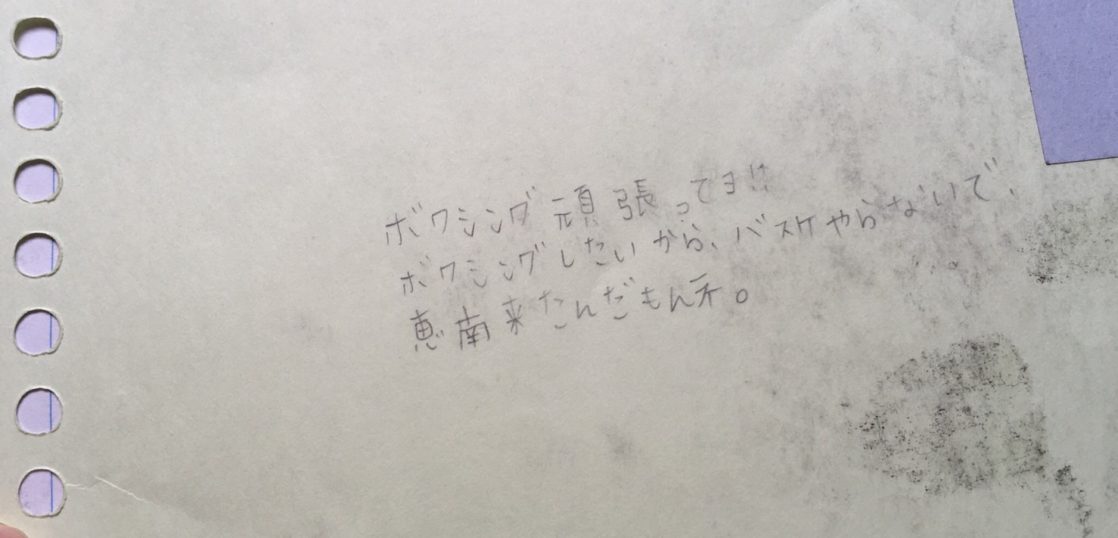 ボクシング頑張ってヨ!!
ボクシングしたいから、バスケやらないで、
恵南来たんだもんネ。